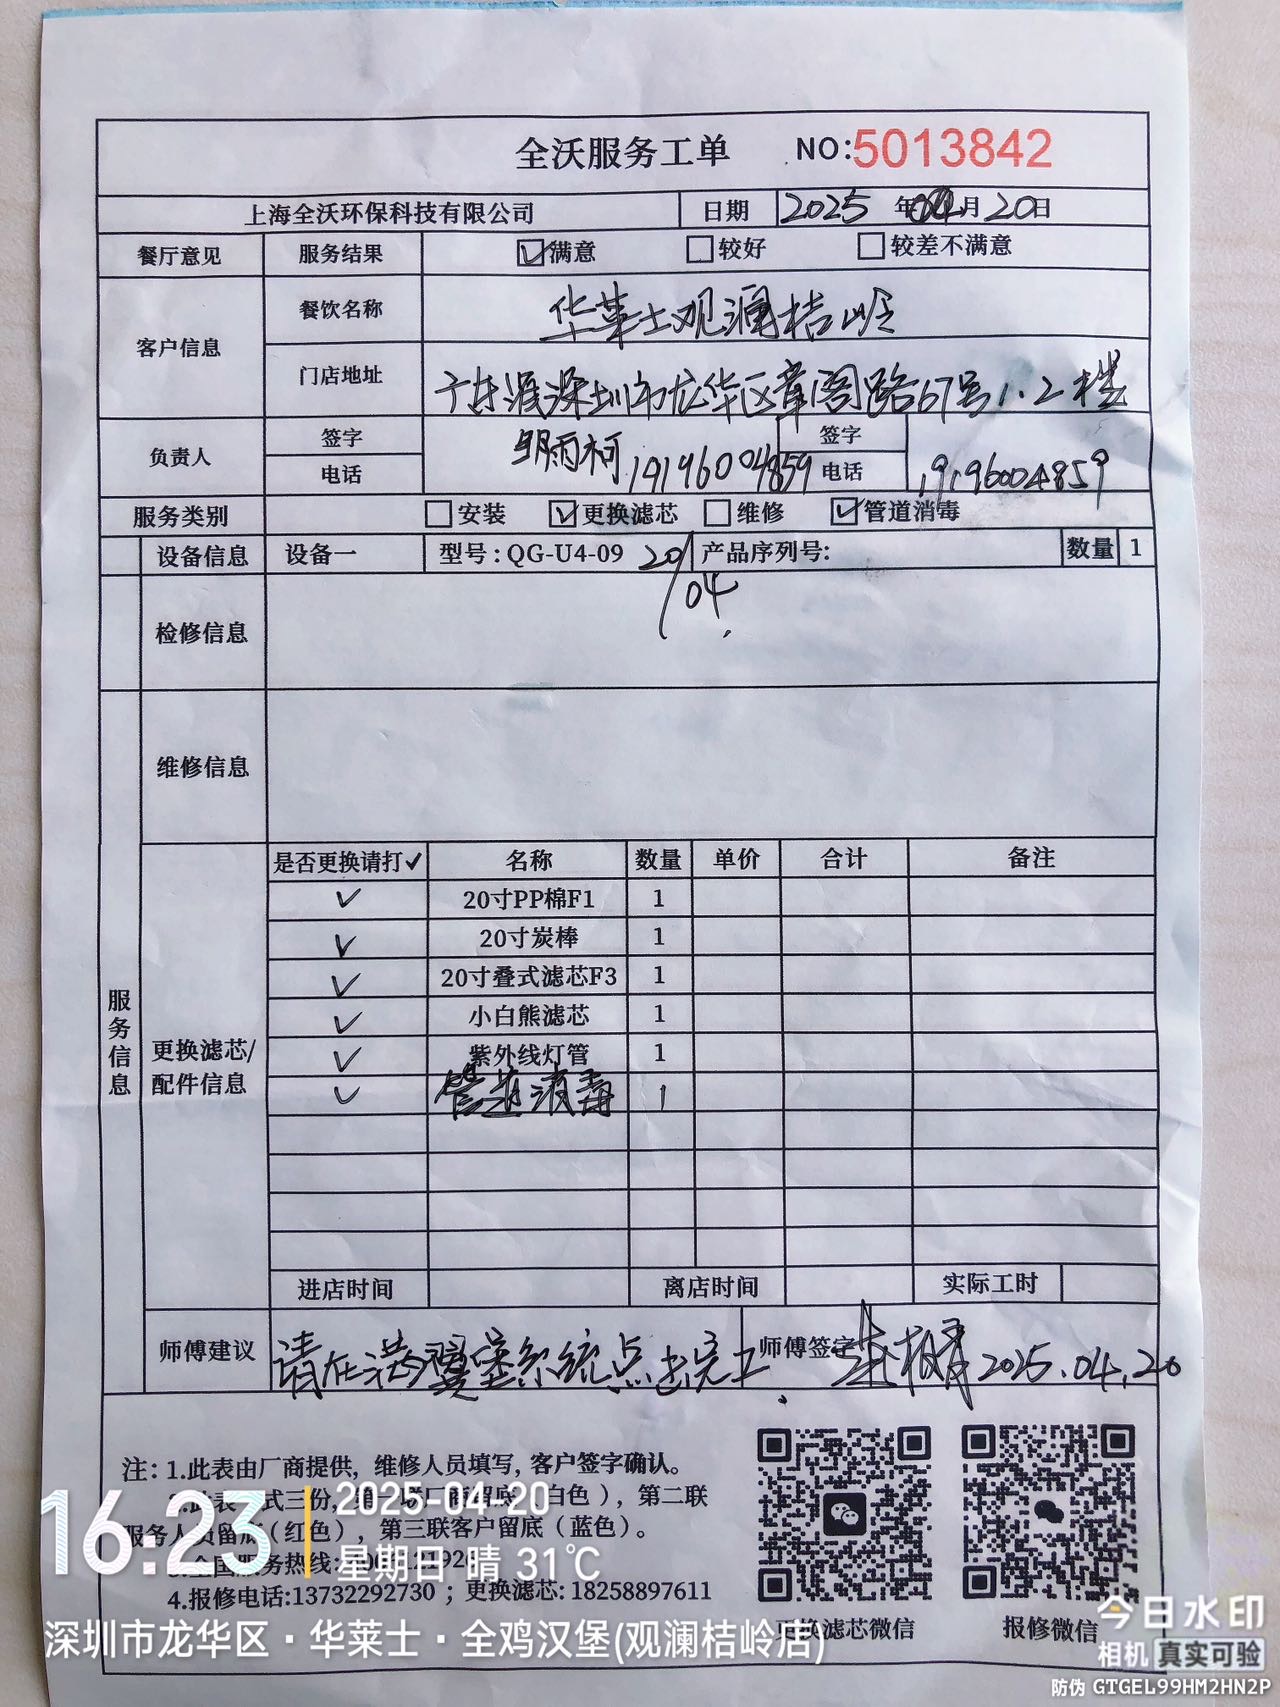 全沃服务工单 NO:5013842
上海全沃环保科技有限公司 日期 2025 年 04 月 20 日
餐厅意见 服务结果 ☑满意 □较好 □较差不满意
客户信息 餐饮名称 华莱士观澜桔岭
门店地址 广东 深圳市龙华区章阁路67号1.2楼
负责人 签字 雨柯 签字
电话 19196004859 电话 19196004859
服务类别 □安装 ☑更换滤芯 □维修 ☑管道消毒
设备信息 设备一 型号:QG-U4-09 20/04 产品序列号: 数量 1
检修信息
维修信息
服务信息
更换滤芯/配件信息
是否更换请打✓ 名称 数量 单价 合计 备注
✓ 20寸PP棉F1 1
✓ 20寸炭棒 1
✓ 20寸叠式滤芯F3 1
✓ 小白熊滤芯 1
✓ 紫外线灯管 1
✓ 管道消毒 1
进店时间 离店时间 实际工时
师傅建议 请在 堡系统点击完工. 师傅签字 2025.04.20
注: 1.此表由厂商提供, 维修人员填写, 客户签字确认。
此表 式三份, 第 联厂商留底(白色), 第二联
服务人员留底(红色), 第三联客户留底(蓝色)。
全国服务热线:
4.报修电话:13732292730 ; 更换滤芯: 18258897611
更换滤芯微信 报修微信
16:23 2025-04-20
星期日 晴 31℃
深圳市龙华区·华莱士·全鸡汉堡(观澜桔岭店)
今日水印
相机 真实可验
防伪 GTGEL99HM2HN2P